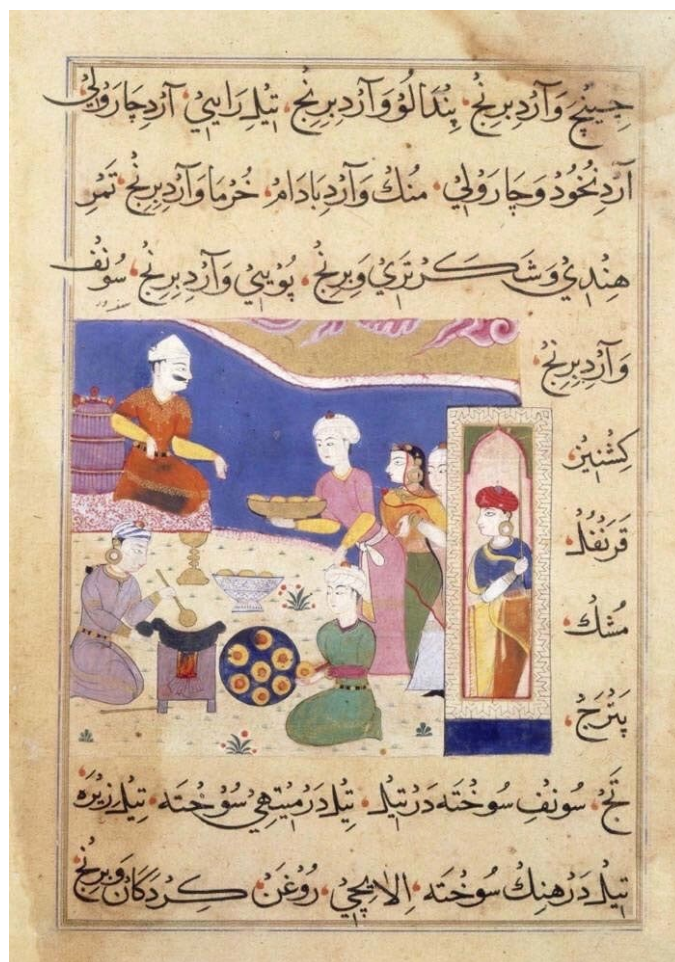 چینچ وَآرْدِ بِرِنْجْ، پِنْدَالُوْ وَآرْدِ بِرِنْجْ، تِیلِ رَایِيْ، آرْدِ چَارَوْلِيْ
آرْدِ نُخُوْد وَچَارَوْلِيْ، مُنْك وَآرْدِ بَادَامْ، خُرْمَا وَآرْدِ بِرِنْجْ، تَمَرِ
هِنْدِيْ وَشَکَرْ تَرِيْ وَبِرِنْجْ، پُوْیِيْ وَآرْدِ بِرِنْجْ، سُونْف
وَآرْدِ بِرِنْجْ،
کِشْنِیْز،
قَرَنْفُلْ،
مُشْك،
پَتْرَجْ،
تَجْ، سُونْفِ سُوخْتَه دَرْ تِیلْ، تِیلْ دَرْ مِیْتْهِيْ سُوْخْتَه، تِیلِ زِیْرَه
تِیلْ دَرْ هِنْك سُوْخْتَه، اِلَایِچِيْ، رُوْغَنْ، کِرْدَکَانْ وَبِرِنْجْ